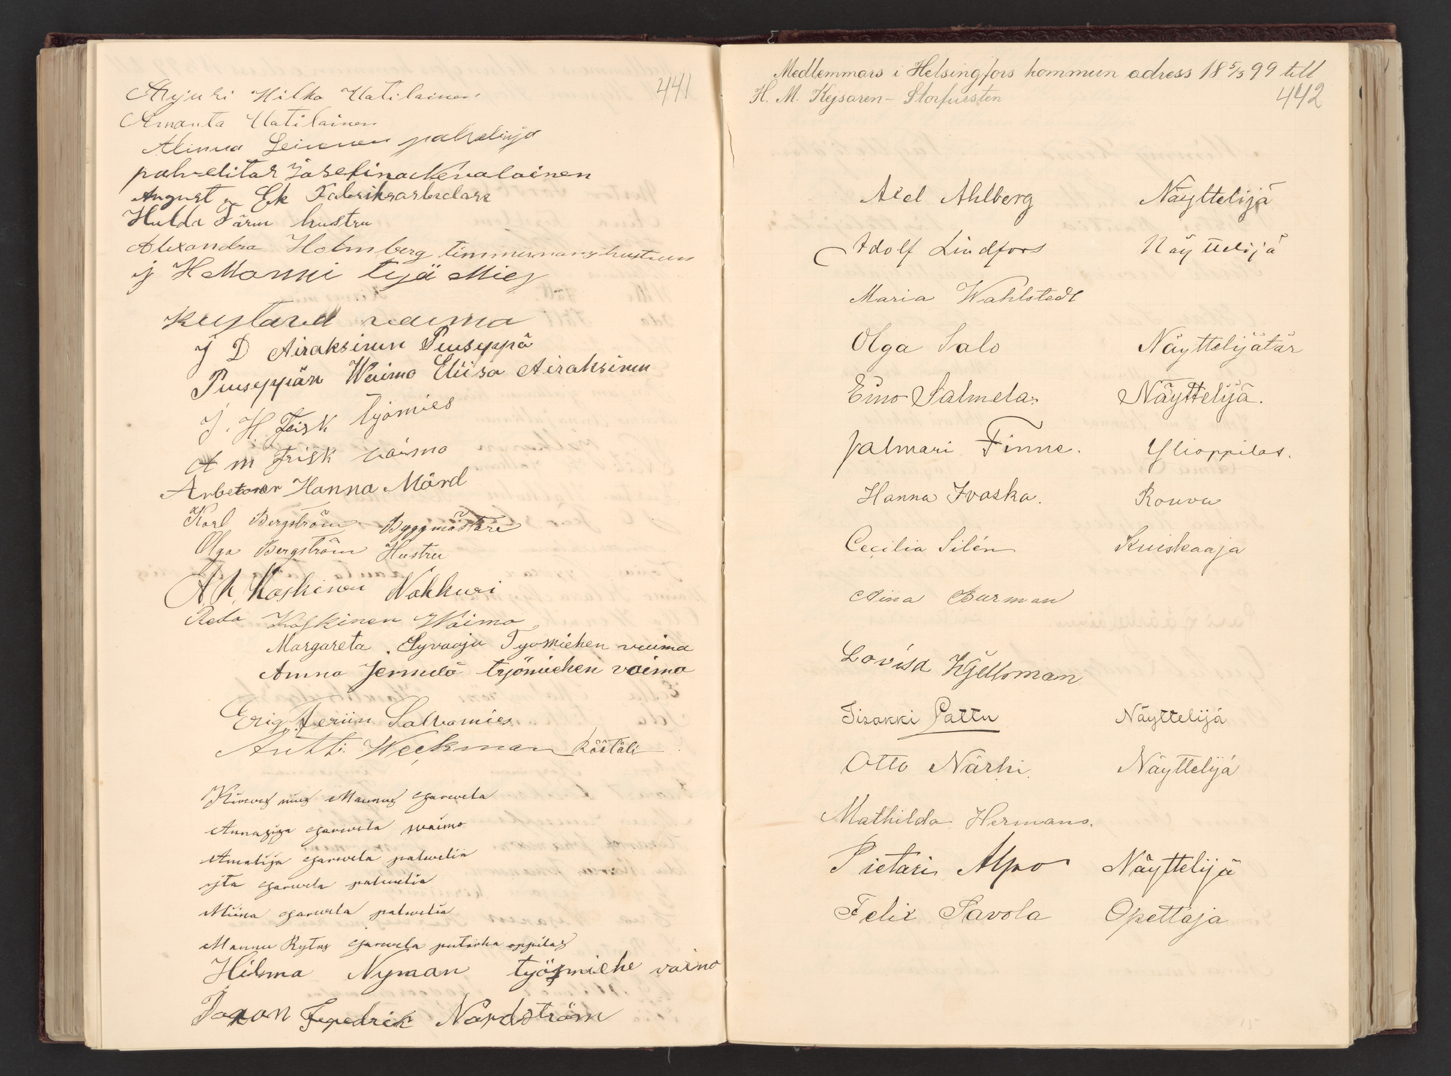 441
Hilka Uatilainen
Amanta Uatilainen
Leinonen palvelija
palvelitar Josefina Kevalainen
August Ek Fabriksarbetare
Hulda Färm hustru
Alexandra Holmberg timmermans hustrun
J H Manni työ Mies
Kustava vaimo
J D Airaksinen Puuseppä
Puuseppän Waimo Eliisa Airaksinen
J. H Frisk työmies
A m Frisk vaimo
Arbetarer Hanna Mård
Karl Bergström Byggmästare
Olga Bergström Hustru
A K Koskinen Nahkuri
Reda Koskinen Waimo
Margareta Syvaoja Tyomiehen vaima
Anna Jennelä työmiehen vaimo
Antti Weckman Räätäli
waimo
palwelia
palwelia
Miina palwelia
Mannu
Hilma Nyman työmiehe vaimo
Fredrik Nordström
Medlemmars i Helsingfors kommun adress 18 5/3 99 till
H. M. Kejsaren-Storfursten
442
Axel Ahlberg Näyttelijä
Adolf Lindfors Näyttelijä
Maria Wahlstedt
Olga Salo Näyttelijätär
Eino Salmela Näyttelijä.
Jalmari Finne. Ylioppilas.
Hanna Ivaska. Rouva
Cecilia Silén Kuiskaaja
Aina Burman
Lovisa Kjellman
Iisakki Lattu Näyttelijä
Otto Närhi. Näyttelijä
Mathilda Hermans.
Pietari Alpo Näyttelijä
Felix Savola Opettaja